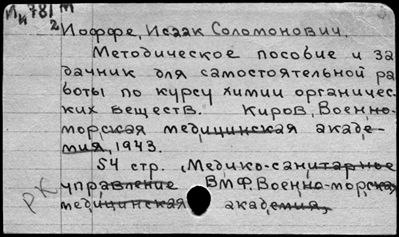 И 781 М
и 2
Иоффе, Исаак Соломонович.
Методическое пособие и за
дачник для самостоятельной ра
боты по курсу химии органичес-
ких веществ. Киров, Военно-
морская медицинская акаде-
мия, 1943.
54 стр. (Медико-санитарное
управление ВМФ. Военно-морская
медицинская академия,
РК